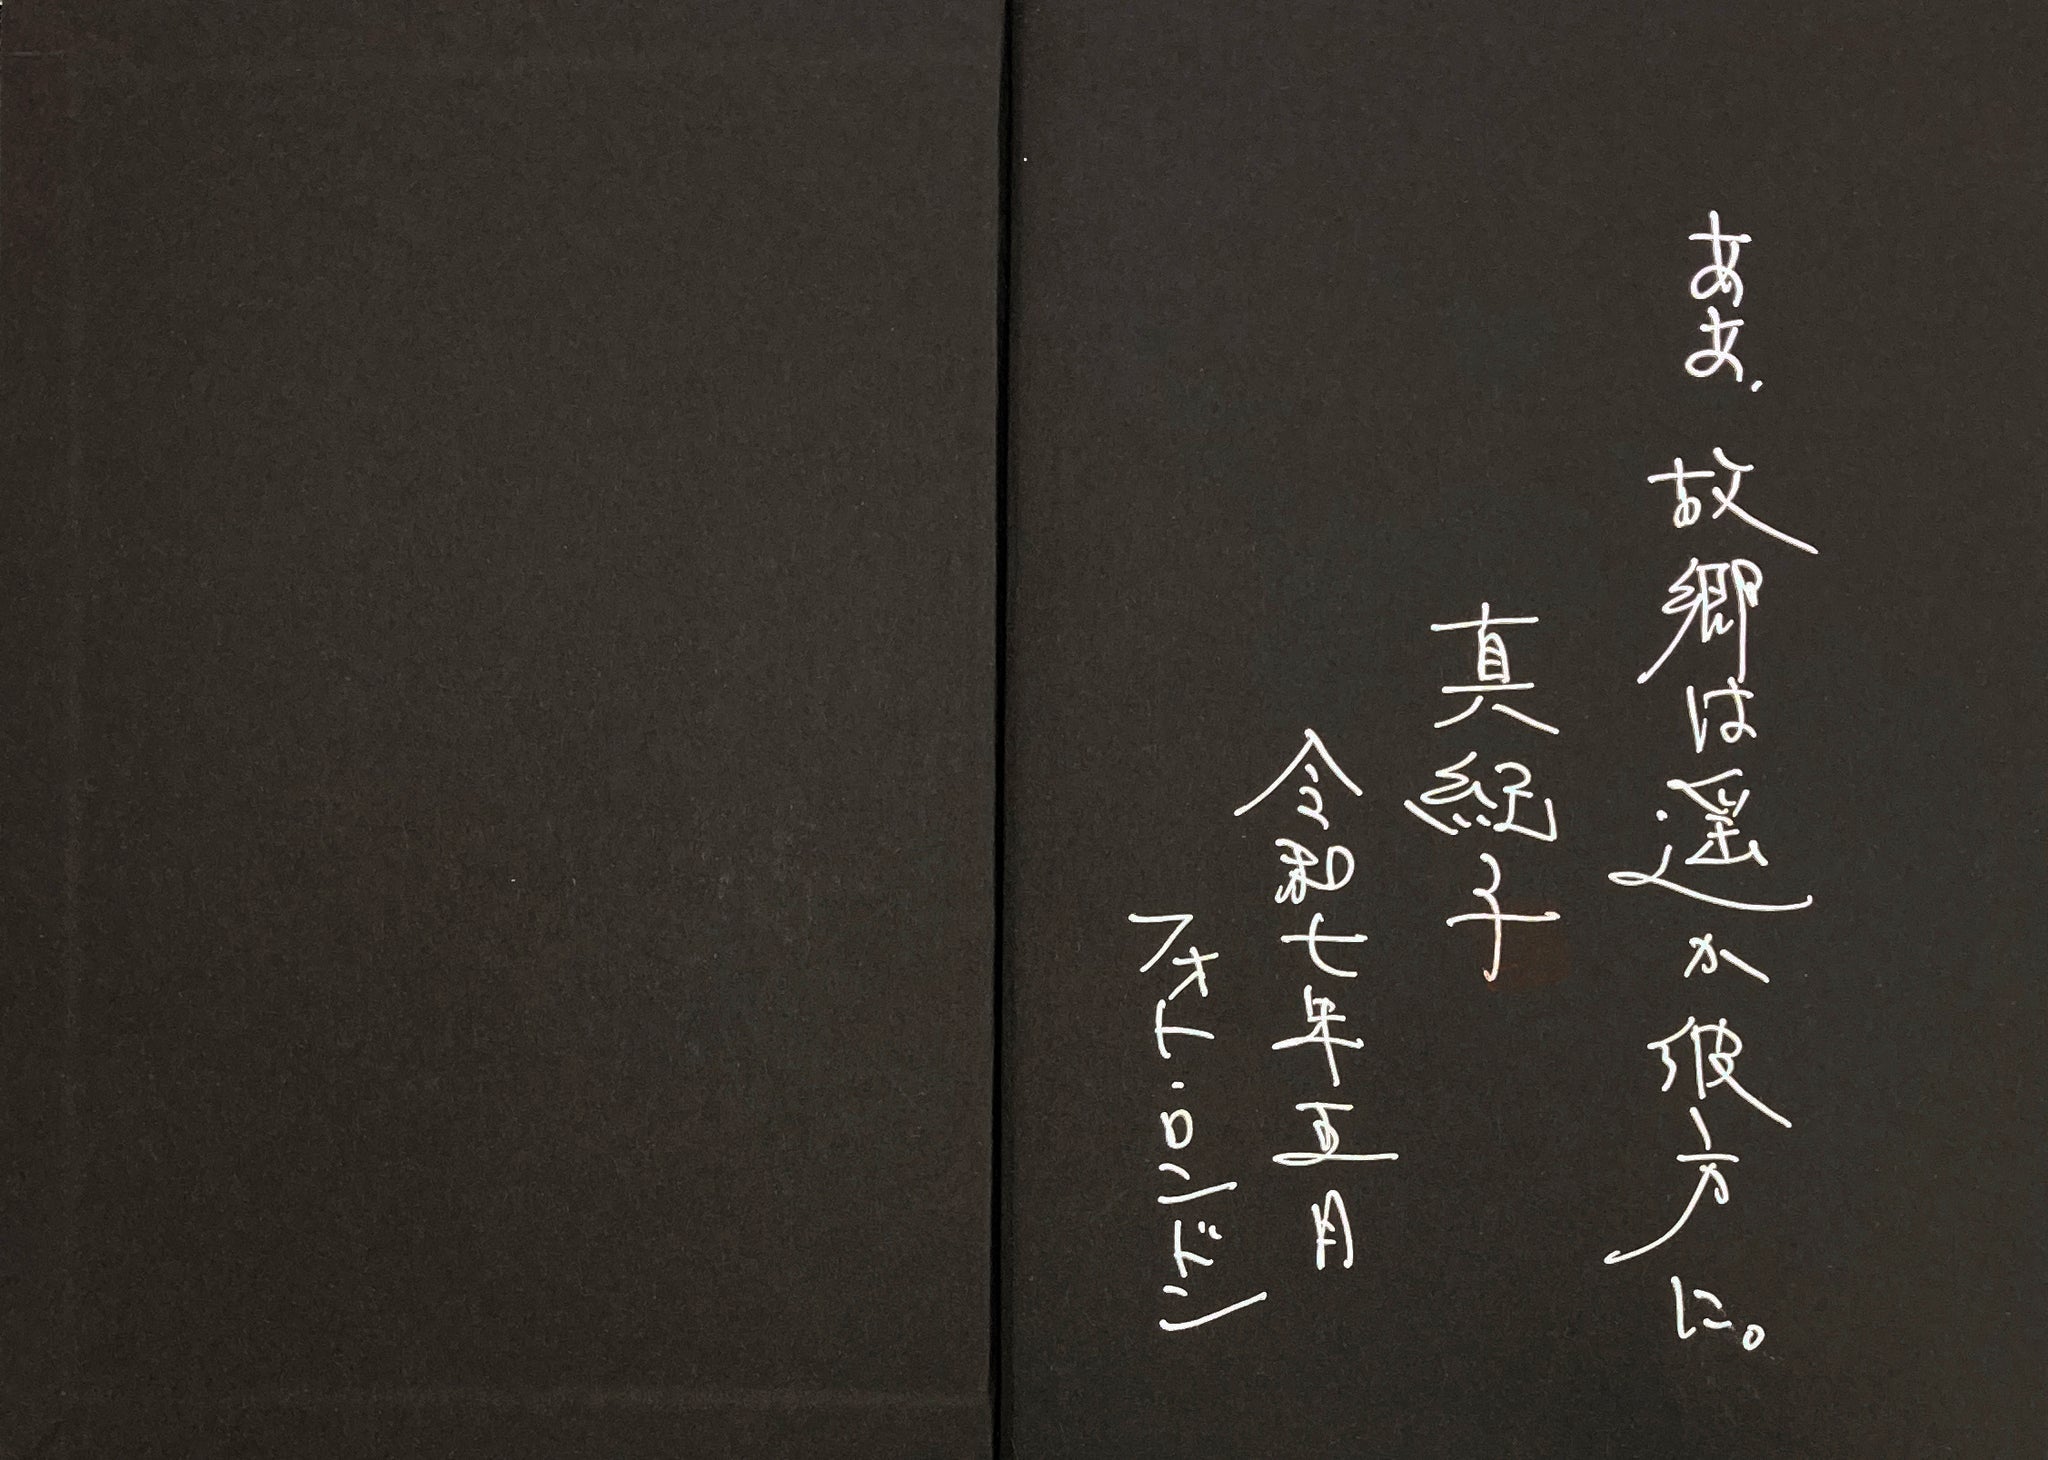 ああ、故郷は遥か彼方に。
真紀子
令和七年五月
フォト・ロンドン